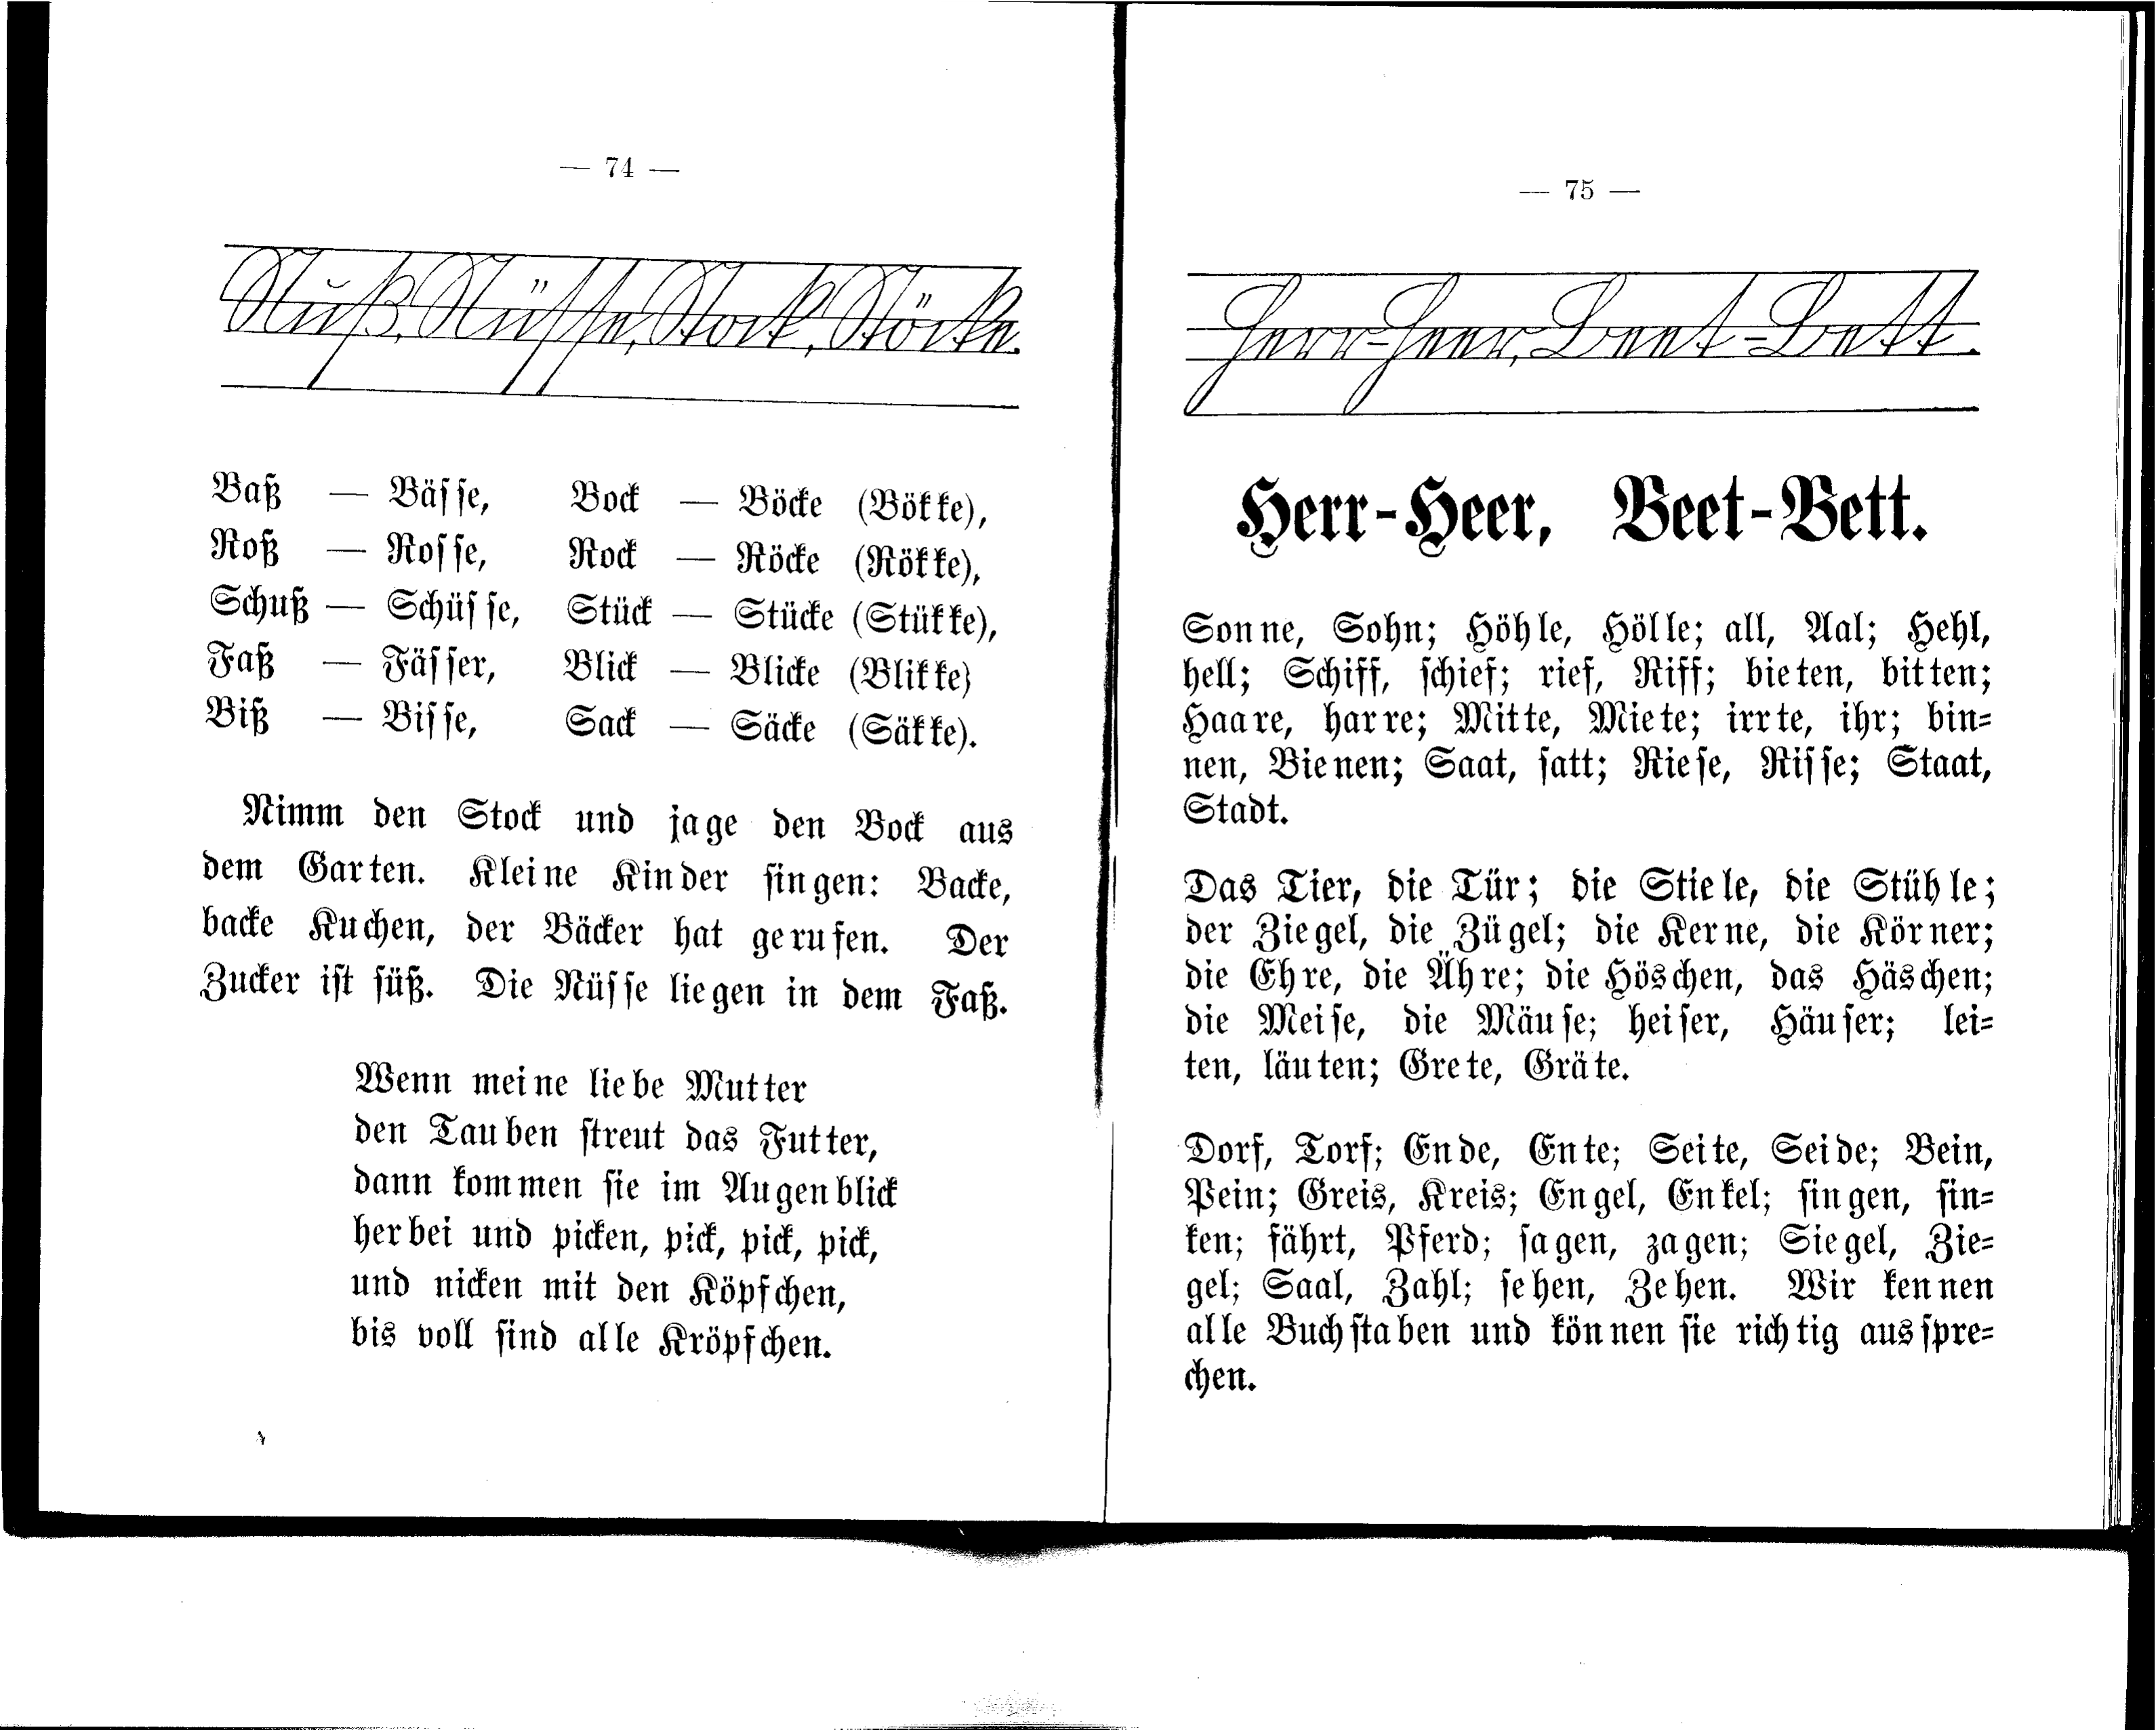 — 74 —
Nuß, Nüsse, Stock, Stöcke.
Baß — Bäs se, Bock — Böcke (Bök ke),
Roß — Ros se, Rock — Röcke (Rök ke),
Schuß — Schüs se, Stück — Stücke (Stük ke),
Faß — Fäs ser, Blick — Blicke (Blik ke)
Biß — Bis se, Sack — Säcke (Säk ke).
Nimm den Stock und ja ge den Bock aus
dem Gar ten. Klei ne Kin der sin gen: Backe,
backe Ku chen, der Bäcker hat ge ru fen. Der
Zucker ist süß. Die Nüs se lie gen in dem Faß.
Wenn mei ne lie be Mut ter
den Tau ben streut das Fut ter,
dann kom men sie im Au gen blick
her bei und picken, pick, pick, pick,
und nicken mit den Köpf chen,
bis voll sind al le Kröpf chen.
— 75 —
Herr-Heer, Beet-Bett.
Herr-Heer, Beet-Bett.
Son ne, Sohn; Höh le, Höl le; all, Aal; Hehl,
hell; Schiff, schief; rief, Riff; bie ten, bit ten;
Haa re, har re; Mit te, Mie te; irr te, ihr; bin-
nen, Bie nen; Saat, satt; Rie se, Ris se; Staat,
Stadt.
Das Tier, die Tür; die Stie le, die Stüh le;
der Zie gel, die Zü gel; die Ker ne, die Kör ner;
die Eh re, die Äh re; die Hös chen, das Häs chen;
die Mei se, die Mäu se; hei ser, Häu ser; lei-
ten, läu ten; Gre te, Grä te.
Dorf, Torf; En de, En te; Sei te, Sei de; Bein,
Pein; Greis, Kreis; En gel, En kel; sin gen, sin-
ken; fährt, Pferd; sa gen, za gen; Sie gel, Zie-
gel; Saal, Zahl; se hen, Ze hen. Wir ken nen
al le Buch sta ben und kön nen sie rich tig aus spre-
chen.